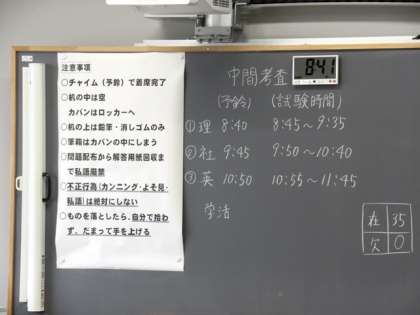 注意事項
○チャイム(予鈴)で着席完了
○机の中は空
カバンはロッカーへ
○机の上は鉛筆・消しゴムのみ
○筆箱はカバンの中にしまう
○問題配布から解答用紙回収ま
で私語厳禁
○不正行為(カンニング・よそ見・
私語)は絶対にしない
○ものを落としたら、自分で拾わ
ず、だまって手を上げる
中間考査
8:41
(予鈴) (試験時間)
①理 8:40 8:45~9:35
②社 9:45 9:50~10:40
③英 10:50 10:55~11:45
学活
在 35
欠 0